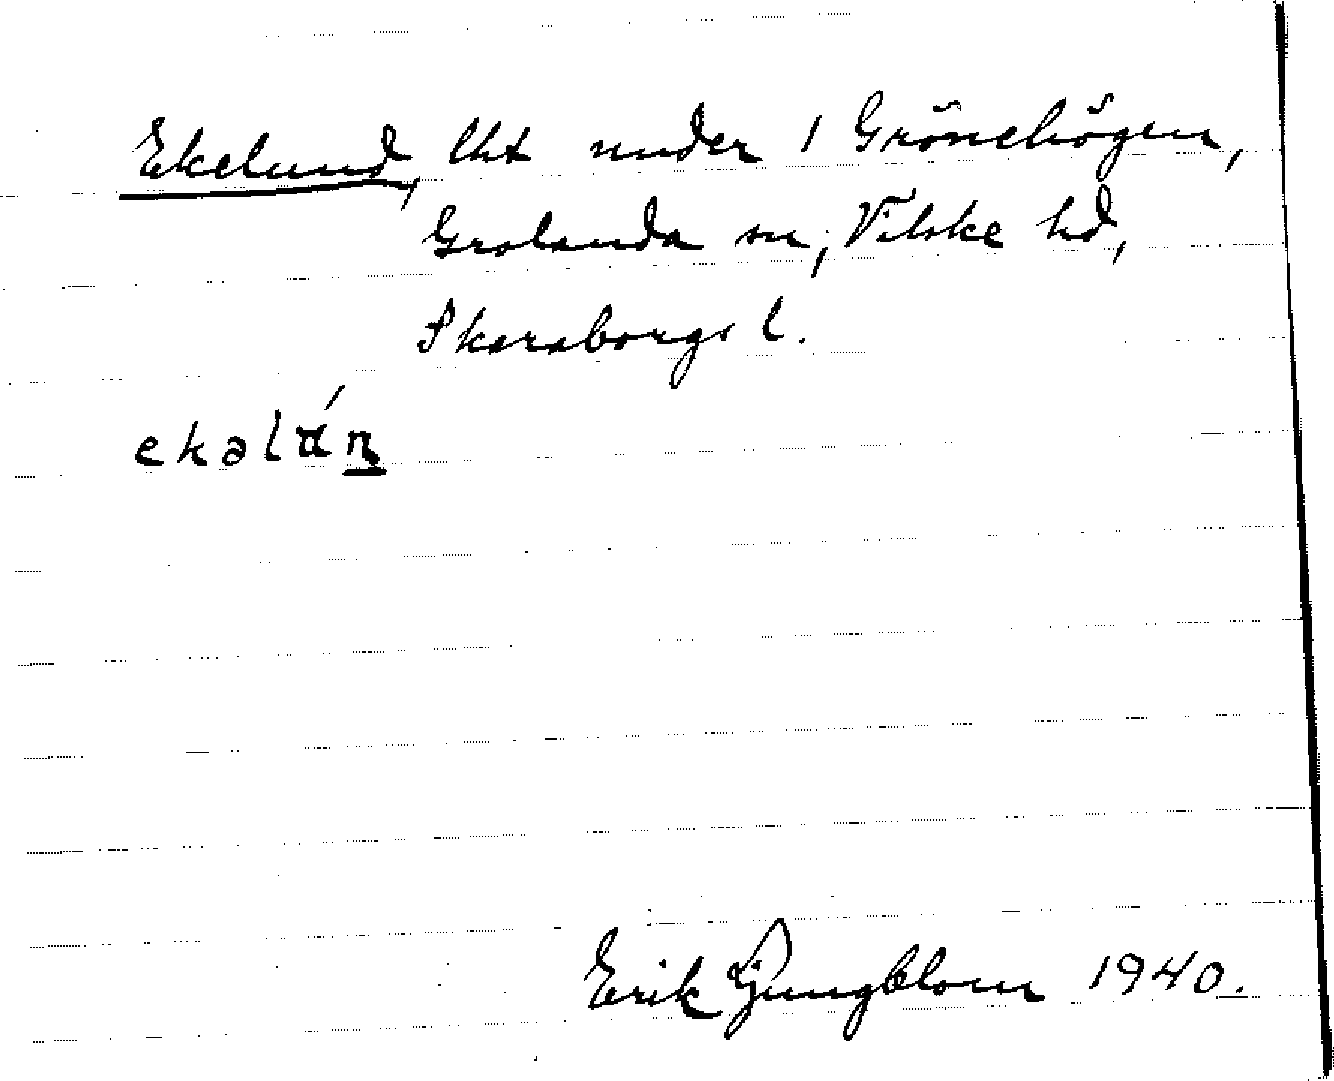 Ekelund, lht under 1 Grönehögen,
Grolanda sn, Vilske hd,
Skaraborgs l.
ekəlún
Erik Ljungblom 1940.